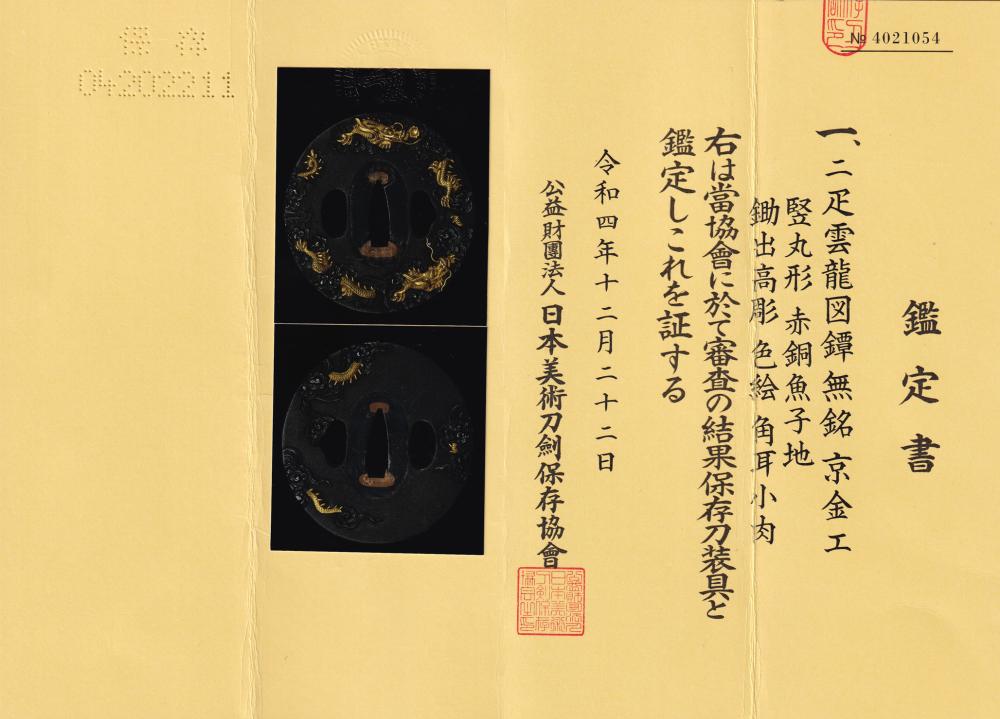 № 4021054
鑑定書
一、二疋雲龍図鐔 無銘 京金工
竪丸形 赤銅魚子地
鋤出高彫 色絵 角耳小肉
右は當協會に於て審査の結果保存刀装具と
鑑定しこれを証する
令和四年十二月二十二日
公益財團法人 日本美術刀劍保存協會
保存
04202211